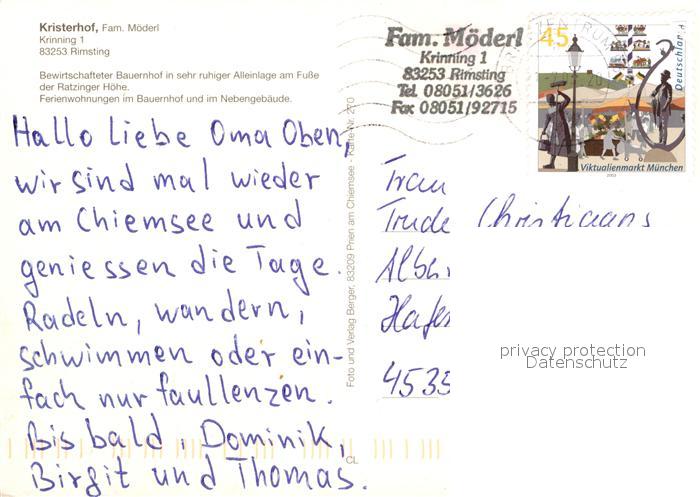 Kristerhof, Fam. Möderl
Krinning 1
83253 Rimsting
Bewirtschafteter Bauernhof in sehr ruhiger Alleinlage am Fuße
der Ratzinger Höhe.
Ferienwohnungen im Bauernhof und im Nebengebäude.
Hallo liebe Oma Oben,
wir sind mal wieder
am Chiemsee und
geniessen die Tage.
Radeln, wandern,
schwimmen oder ein-
fach nur faullenzen.
Bis bald, Dominik,
Birgit und Thomas.
Foto und Verlag Berger, 83209 Prien am Chiemsee - Karte Nr. 270
CL
Fam. Möderl
Krinning 1
83253 Rimsting
Tel. 08051/3626
Fax 08051/92715
45
Deutschland
Viktualienmarkt München
2003
Frau
Trude Christiaans
4535
privacy protection
Datenschutz